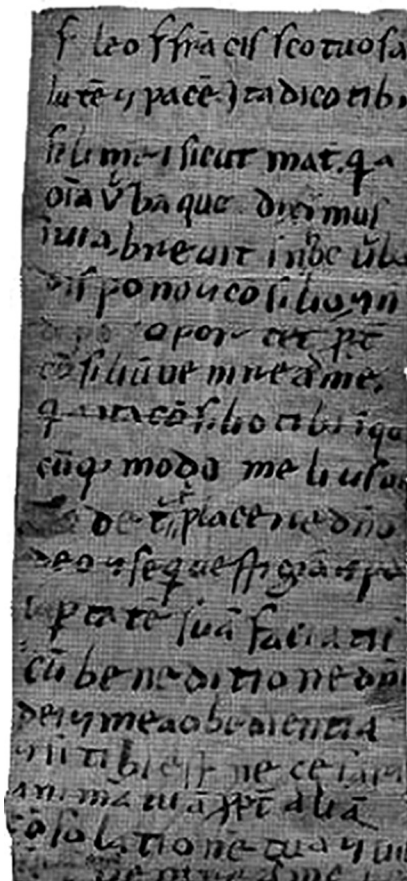 f leo f francisſco tuo ſa
lutē ⁊ pacē ita dico tibi
fili mei ſicut mat. q a
oīa v̄ba que diximus
ī via breuit̄ ī hoc v̄bo
diſpono ⁊ coſilio ⁊ n̄
oportet p̱t
cōſiliū ve nire ad me,
q̄ ita cōſilio tibi ī quo
cūq; modo melius
de t̄ t̄ placere dn̄o
deo ⁊ ſeq ueſtigiā ⁊ po
up̱tatē ſuā faciatiſ
cū beneditione dn̄i
dei ⁊ mea obedientia
⁊ ſi tibi eſt neceſari
animā tuā p̱t aliā
cōſolationē tuā ⁊ vi
venire ad me